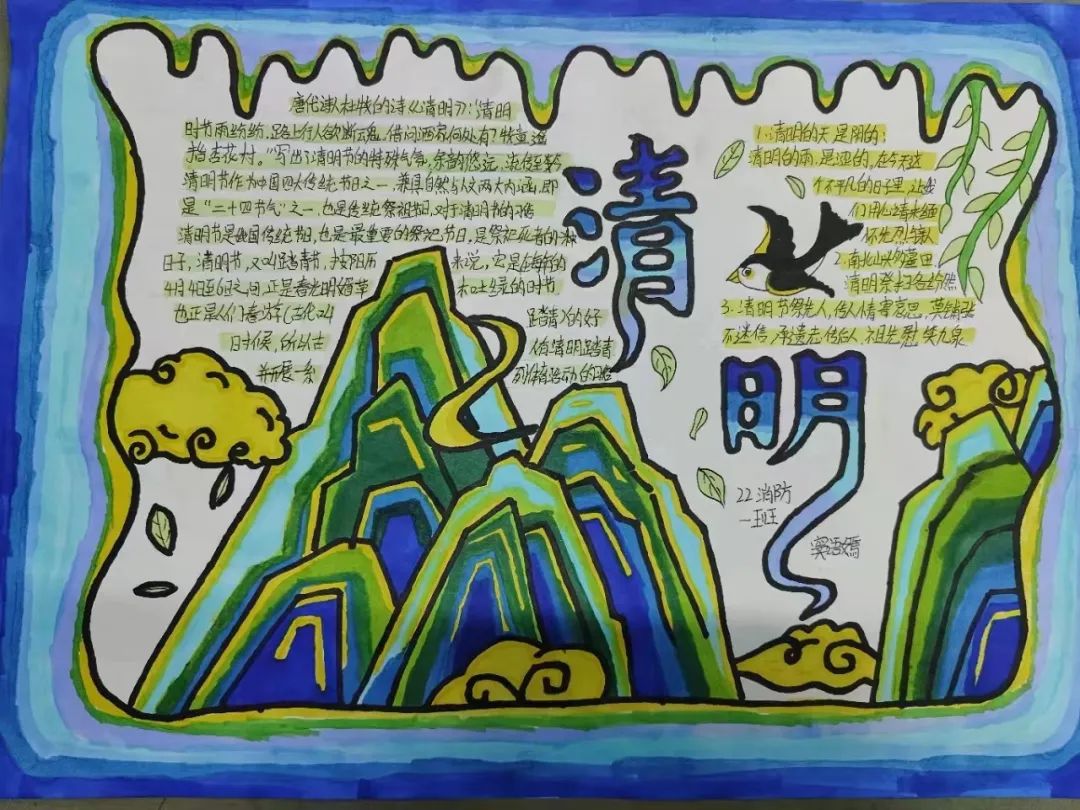 唐代诗人杜牧的诗《清明》:"清明
时节雨纷纷,路上行人欲断魂。借问酒家何处有?牧童遥
指杏花村。"写出了清明节的特殊气氛,
清明节作为中国四大传统节日之一,兼具自然与人文两大内涵,即
是"二十四节气"之一,也是传统祭祖节日,对于清明节的习俗
清明节是我国传统节日,也是最重要的祭祀节日,是祭祀死者的
日子,清明节,又叫踏青节,按阳历来说,它是在每年的
4月4日至6日之间,正是春光明媚草木吐绿的时节,
也正是人们春游(古代叫踏青)的好
时候,所以古人有清明踏青
并开展一系列体育活动的习俗
清
明
1.清明的天是阴的;
清明的雨,是泪的,在今天这
个不平凡的日子里,让我
们用心情来缅
怀先烈
2.南北山头多墓田
清明祭扫各纷然
3.清明节祭先人,后人情寄哀思,莫铺张
不迷信,承遗志传后人,祖先慰,笑九泉
22消防
一班